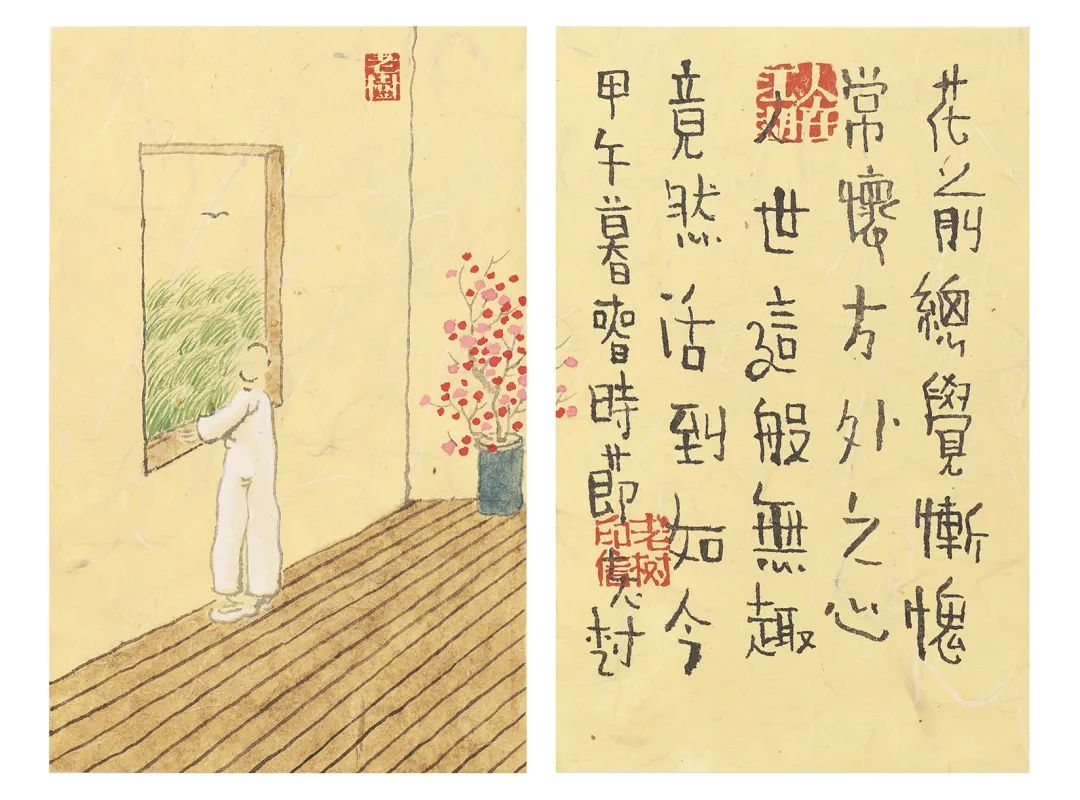 花前總覺慚愧
常懷方外之心
人世這般無趣
竟然活到如今
甲午暮春時節老树
老樹
人在江湖
老树印信